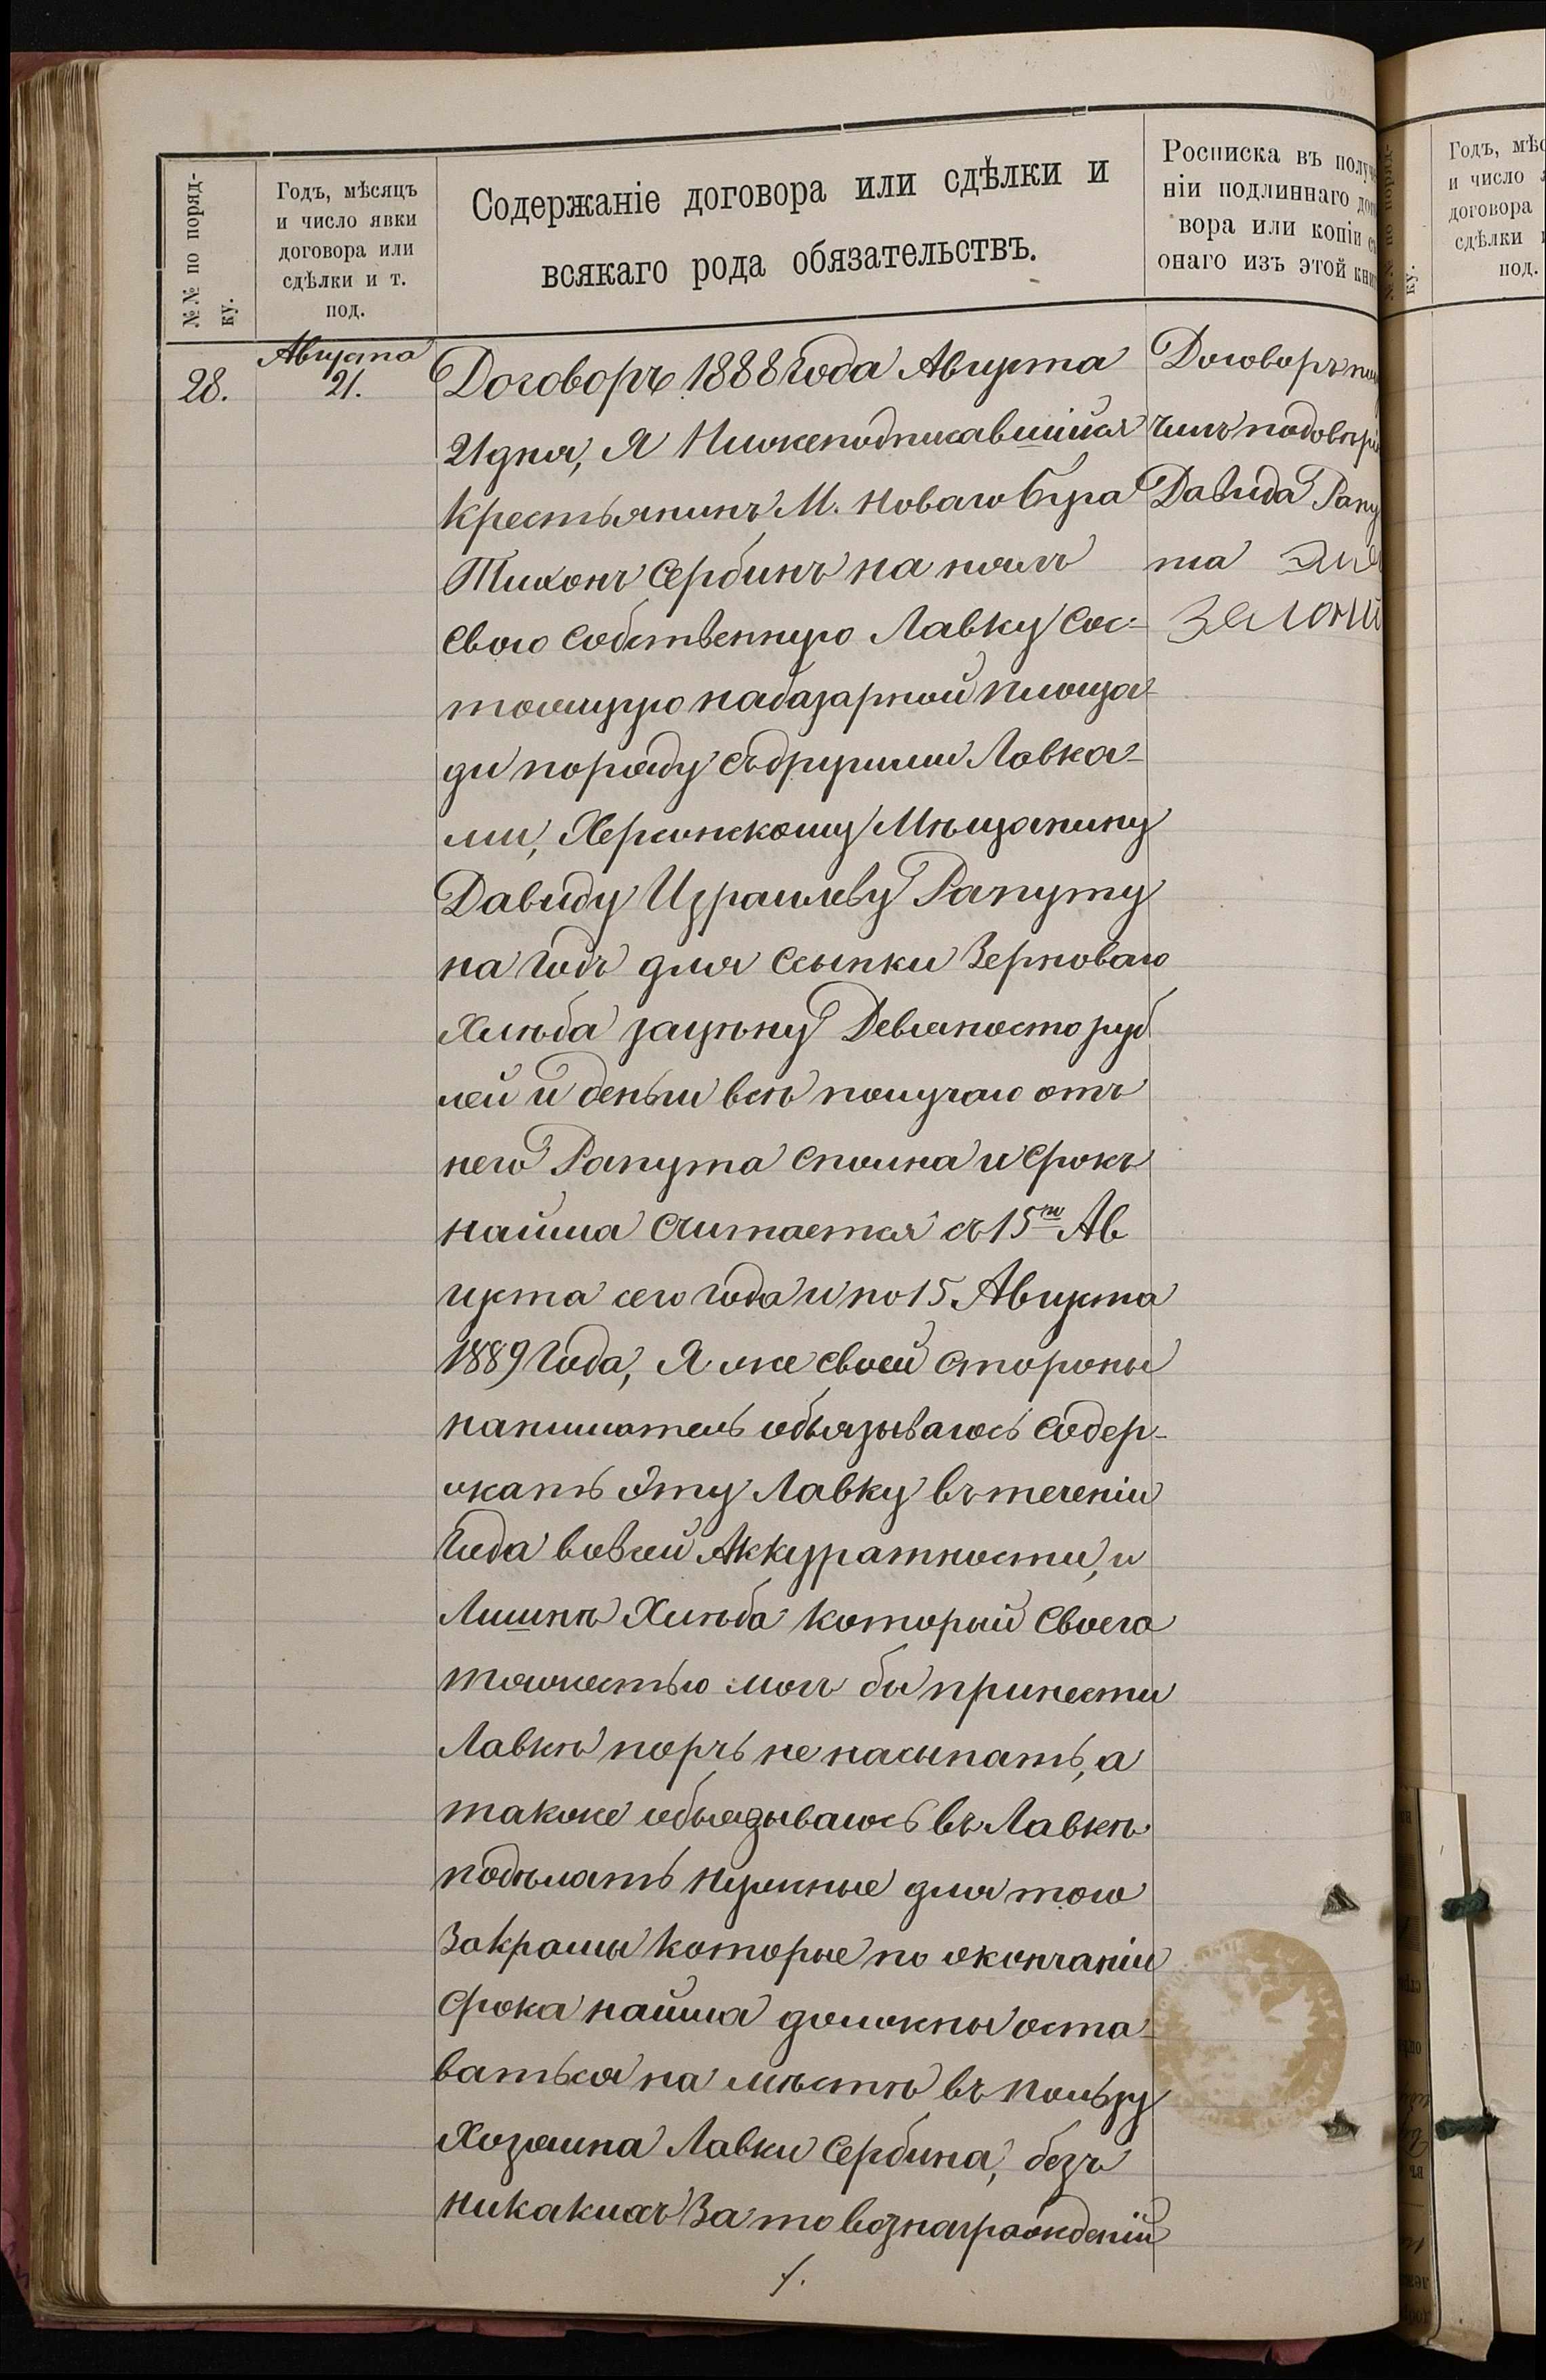 №№ по поряд-
ку.
Годъ, мѣсяцъ
и число явки
договора или
сдѣлки и т.
под.
Содержаніе договора или сдѣлки и
всякаго рода обязательствъ.
Росписка въ полу
ніи подлиннаго
вора или копіи
онаго изъ этой
28.
Августа
21.
Договоръ 1888 года Августа
21 дня, Я Нижеподписавшійся
Крестьянинъ М. Новаго Буга
Тихонъ Сербинъ на нялъ
Свою Собственную Лавку Сос-
тоящую на базарной площа-
ди поряду съ другими Лавка-
ми, Херсонскому Мѣщанину
Давиду Израилеву Рапуту
на годъ для Ссыпки Зерноваго
Хлѣба за цѣну Девяносто руб
лей и деньги всѣ получаю отъ
него Рапута Сполна и Срокъ
найма Считается съ 15го Ав
густа сего года и по 15 Августа
1889 Года, Я же Своей Стороны
наниматель обьязываюсь Содер-
жать Эту Лавку въ теченіи
Года вовсей Аккуратности, и
Лишнѣ Хлѣба который Своего
тяжестью могъ бы принести
Лавкѣ порчь не насыпать, а
также обьязываюсь въ Лавкѣ
подѣлать нужные для того
Закромы которые по окончаніи
Срока найма должны оста-
ваться на мѣстѣ въ пользу
Хозяина Лавки Сербина, безъ
никакихъ За то вознагражденій
Договоръ
чилъ подовѣрі
Давида Рапу
та
Годъ, мѣс
и число
договора
сдѣлки
под.
ку.